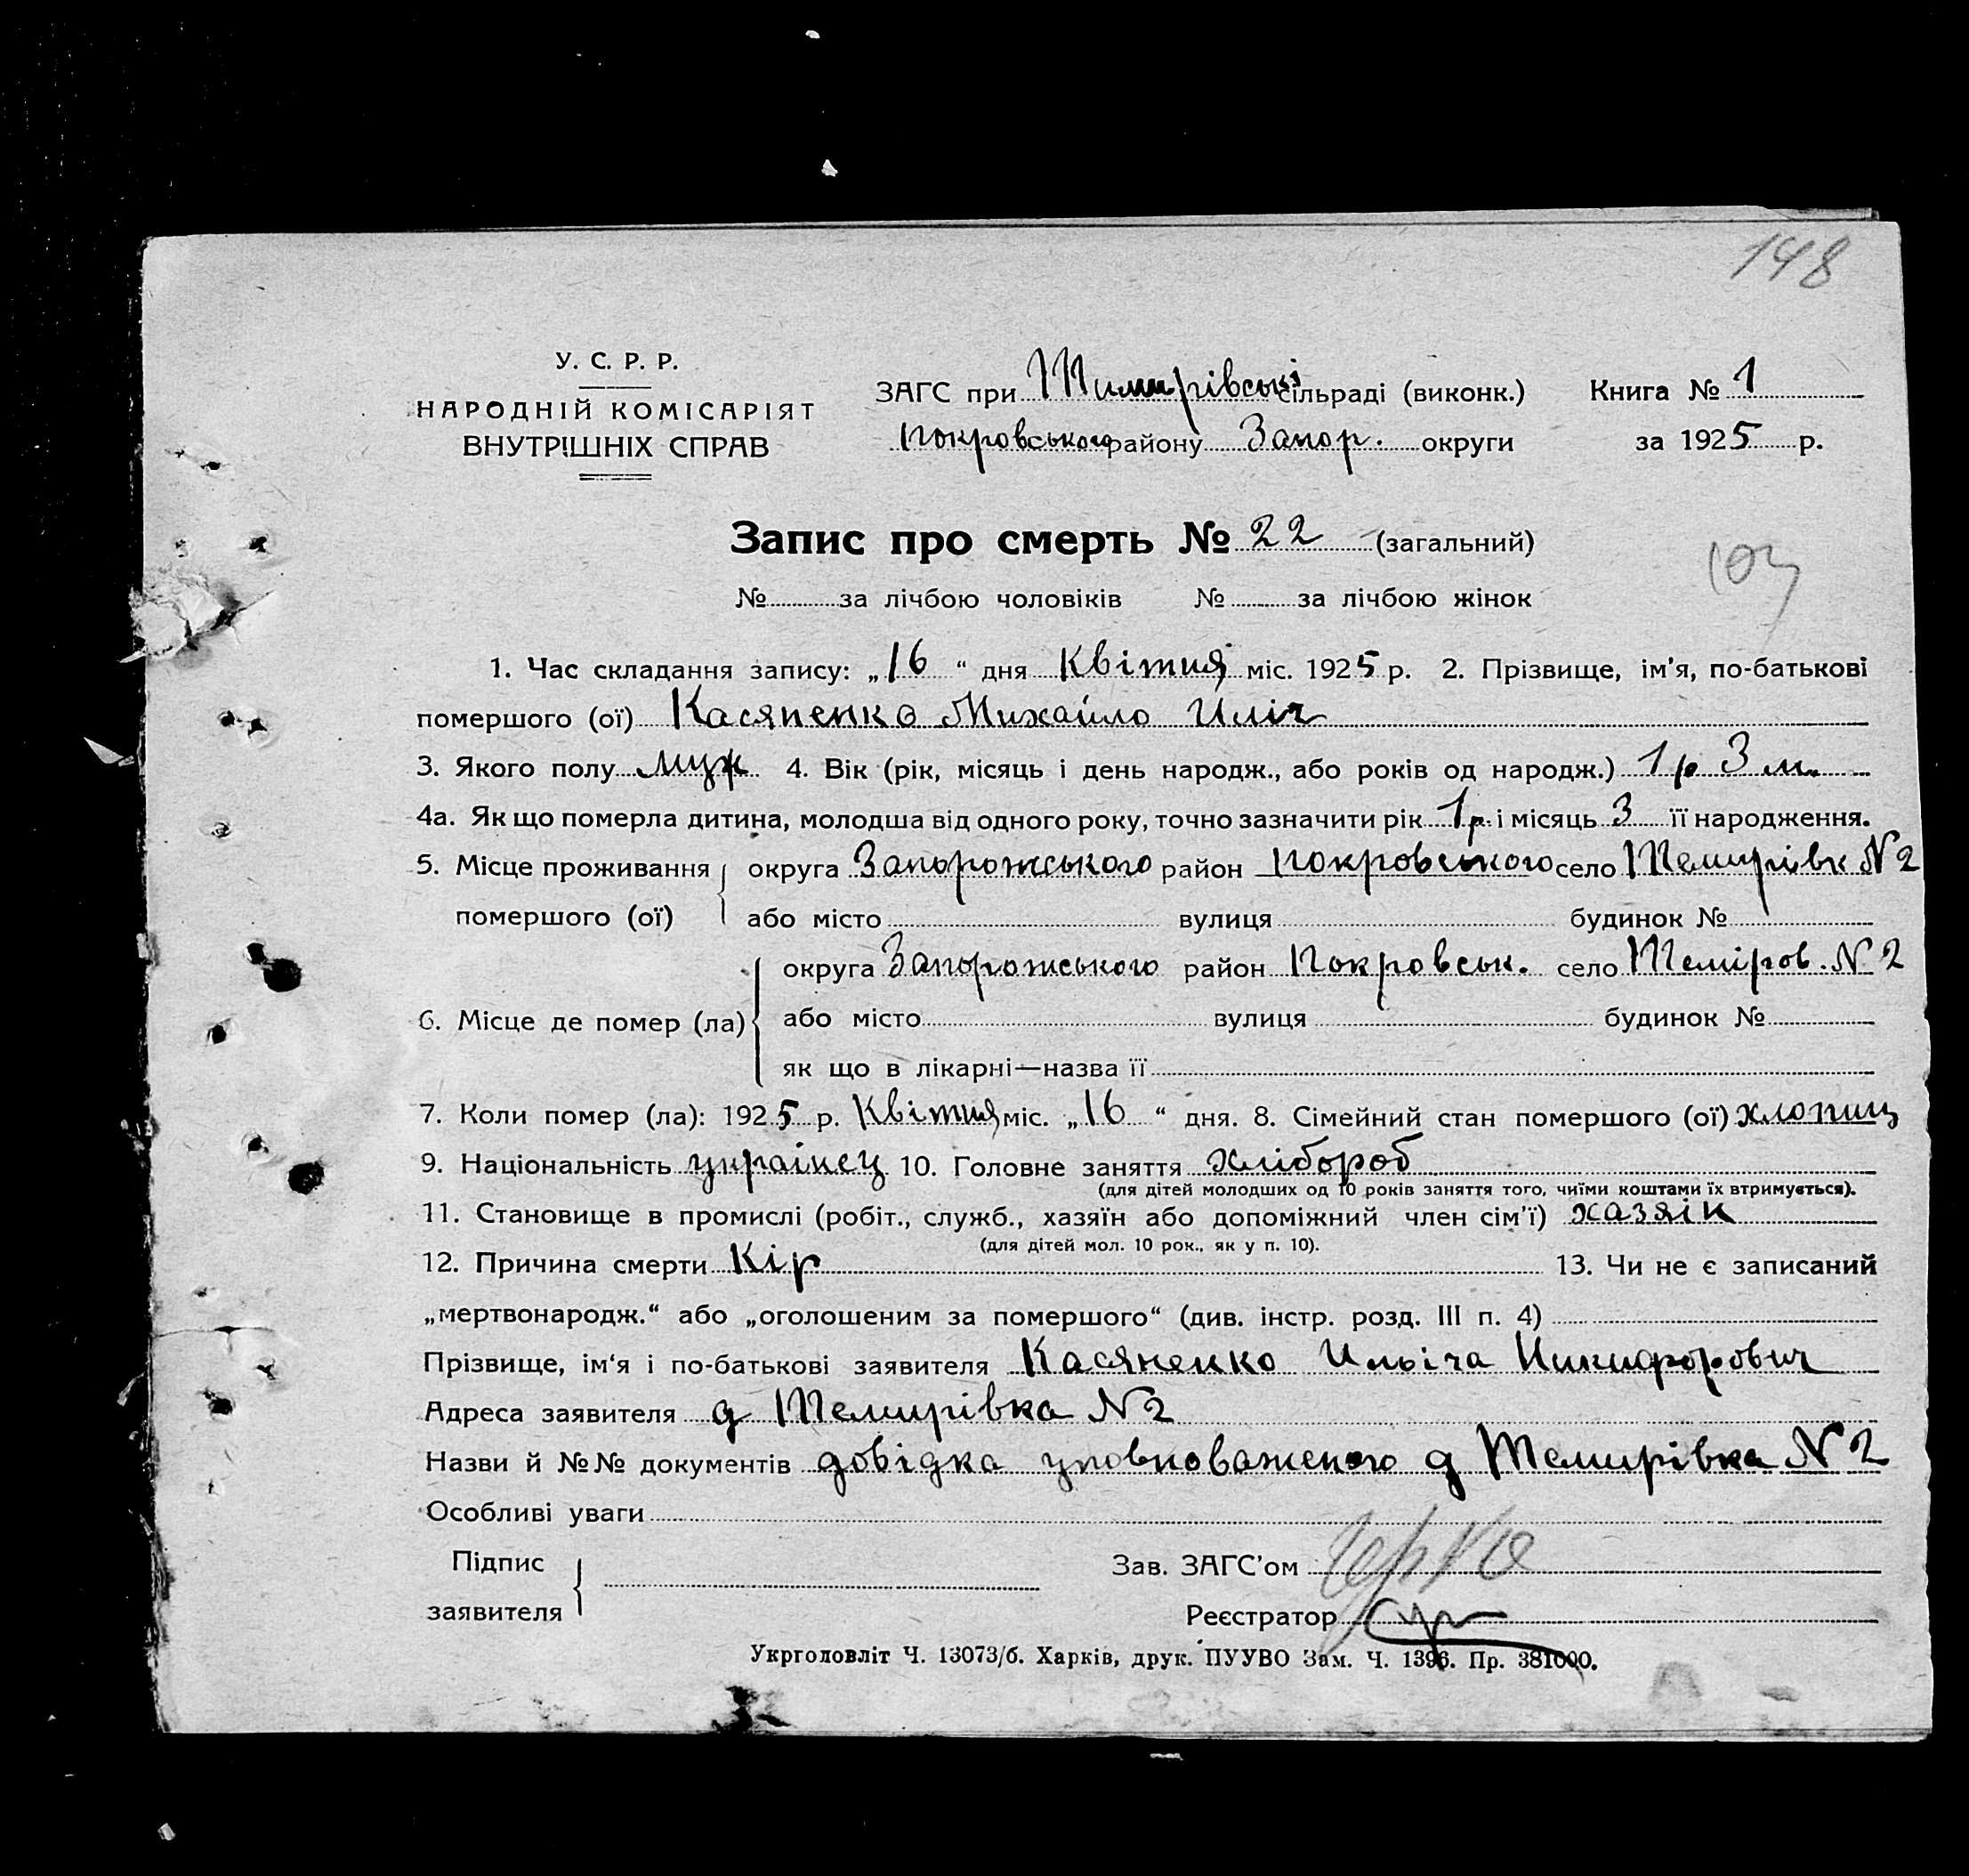 148
У. С. Р. Р.
НАРОДНІЙ КОМІСАРІЯТ
ВНУТРІШНІХ СПРАВ
ЗАГС при Темирівські сільраді (виконк.) Книга № 1
Покровського району Запор. округи за 1925 р.
Запис про смерть № 22 (загальний)
№ за лічбою чоловіків № за лічбою жінок
1. Час складання запису: „16“ дня Квітня міс. 1925 р. 2. Прізвище, ім'я, по-батькові
помершого (ої) Касяненко Михайло Иліч
3. Якого полу муж 4. Вік (рік, місяць і день народж., або років од народж.) 1 р 3 м.
4а. Як що померла дитина, молодша від одного року, точно зазначити рік 1 р. і місяць 3 її народження.
5. Місце проживання помершого (ої) округа Запорожського район Покровського село Темирівк N 2
або місто вулиця будинок №
6. Місце де помер (ла) округа Запорожського район Покровськ. село Теміров. N 2
або місто вулиця будинок №
як що в лікарні—назва її
7. Коли помер (ла): 1925 р. Квітня міс. „16“ дня. 8. Сімейний стан помершого (ої) хлопиц
9. Національність украінец 10. Головне заняття хлібороб
(для дітей молодших од 10 років заняття того, чиїми коштами їх втримується).
11. Становище в промислі (робіт., служб., хазяїн або допоміжний член сім'ї) хазяін
(для дітей мол. 10 рок., як у п. 10).
12. Причина смерти Кір 13. Чи не є записаний
„мертвонародж.“ або „оголошеним за помершого“ (див. інстр. розд. III п. 4)
Прізвище, ім'я і по-батькові заявителя Касяненко Ильіча Никифорович
Адреса заявителя д Темирівка N 2
Назви й №№ документів довідка уповноваженого д Темирівка N 2
Особливі уваги
Підпис заявителя
Зав. ЗАГС'ом
Реєстратор
Укрголовліт Ч. 13073/б. Харків, друк. ПУУВО Зам. Ч. 1396. Пр. 381000.